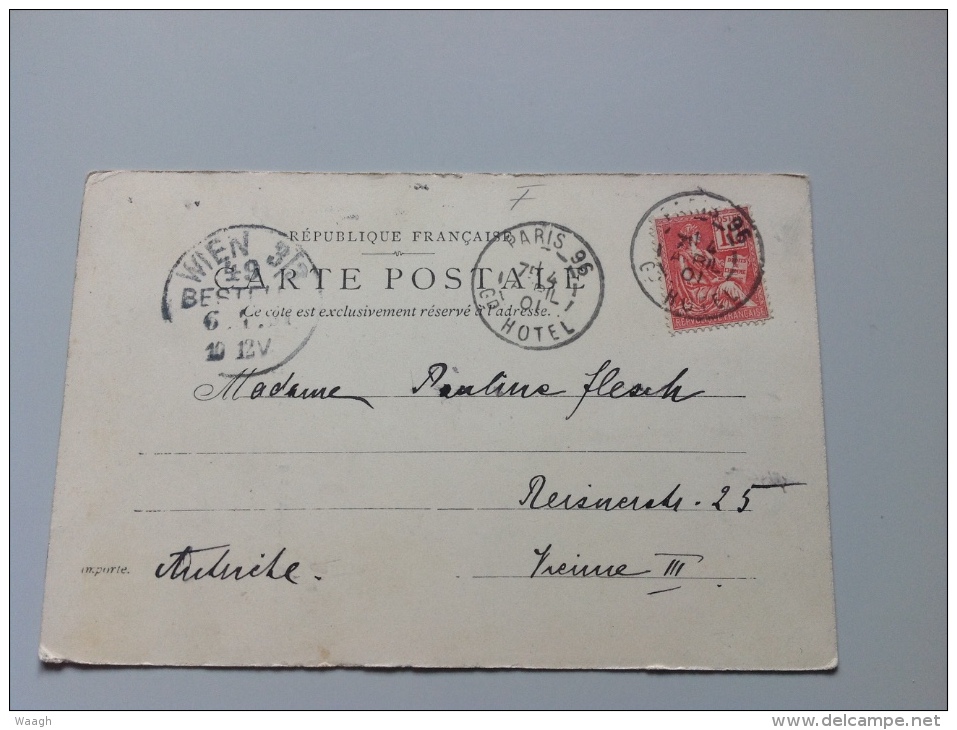 F
RÉPUBLIQUE FRANÇAISE
CARTE POSTALE
Ce côté est exclusivement réservé à l'adresse.
WIEN 3
49
BESTELL
6
10 12V
PARIS_96
7 4
01
GD HOTEL
96
01
HOTEL
POSTES
10
RÉPUBLIQUE FRANÇAISE
Madame Pauline Flesch
Reisnerstr. 25
Autriche. Vienne III
importé.
Waagh
www.delcampe.net